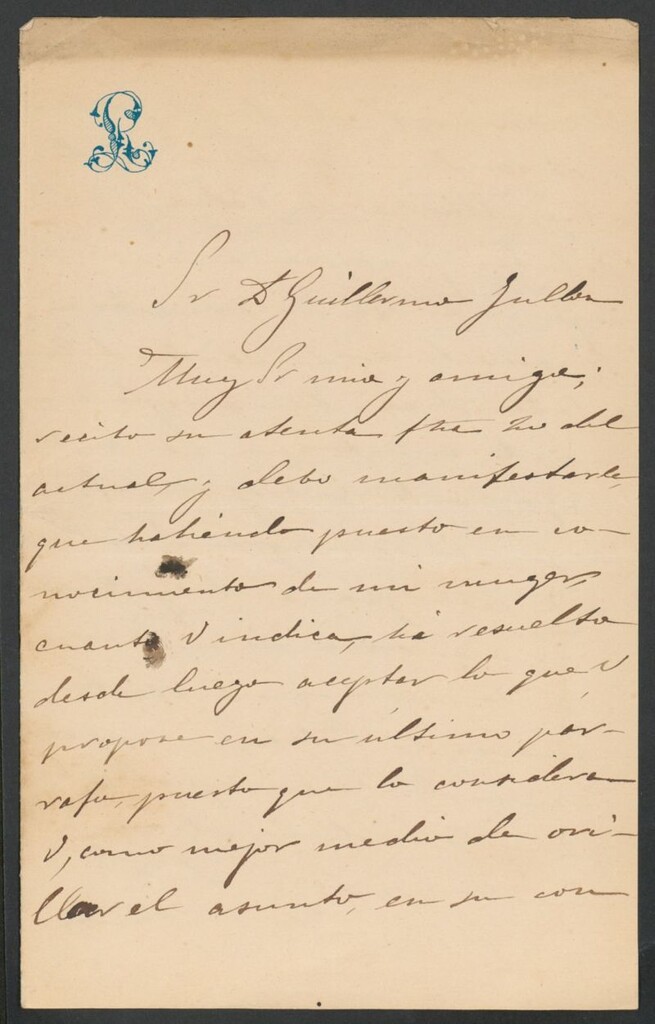 Sr Dn Guillermo Jullian
Muy Sr mio y amigo;
recibo su atenta fha 20 del
actual, y debo manifestarle,
que habiendo puesto en co-
nocimiento de mi muger,
cuanto V indica, há resuelto
desde luego aceptar lo que V
propone en su último pár-
rafo, puesto que lo considera
V, como mejor medio de ori-
llar el asunto, en su con